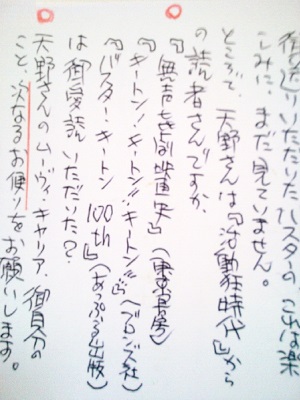 御送りいただいたバスター、これは楽
しみに、まだ見ていません。
ところで、天野さんは『活動狂時代』から
の読者さんですか、
『無声喜劇映画史』（東京書房）
『キートン！キートン!!キートン!!!』（ブロンズ社）
『バスター・キートン 100th』（あっぷる出版）
は御愛読いただいた？
天野さんのムーヴィ・キャリア、御自分の
こと、次なるお便りをお願いします。